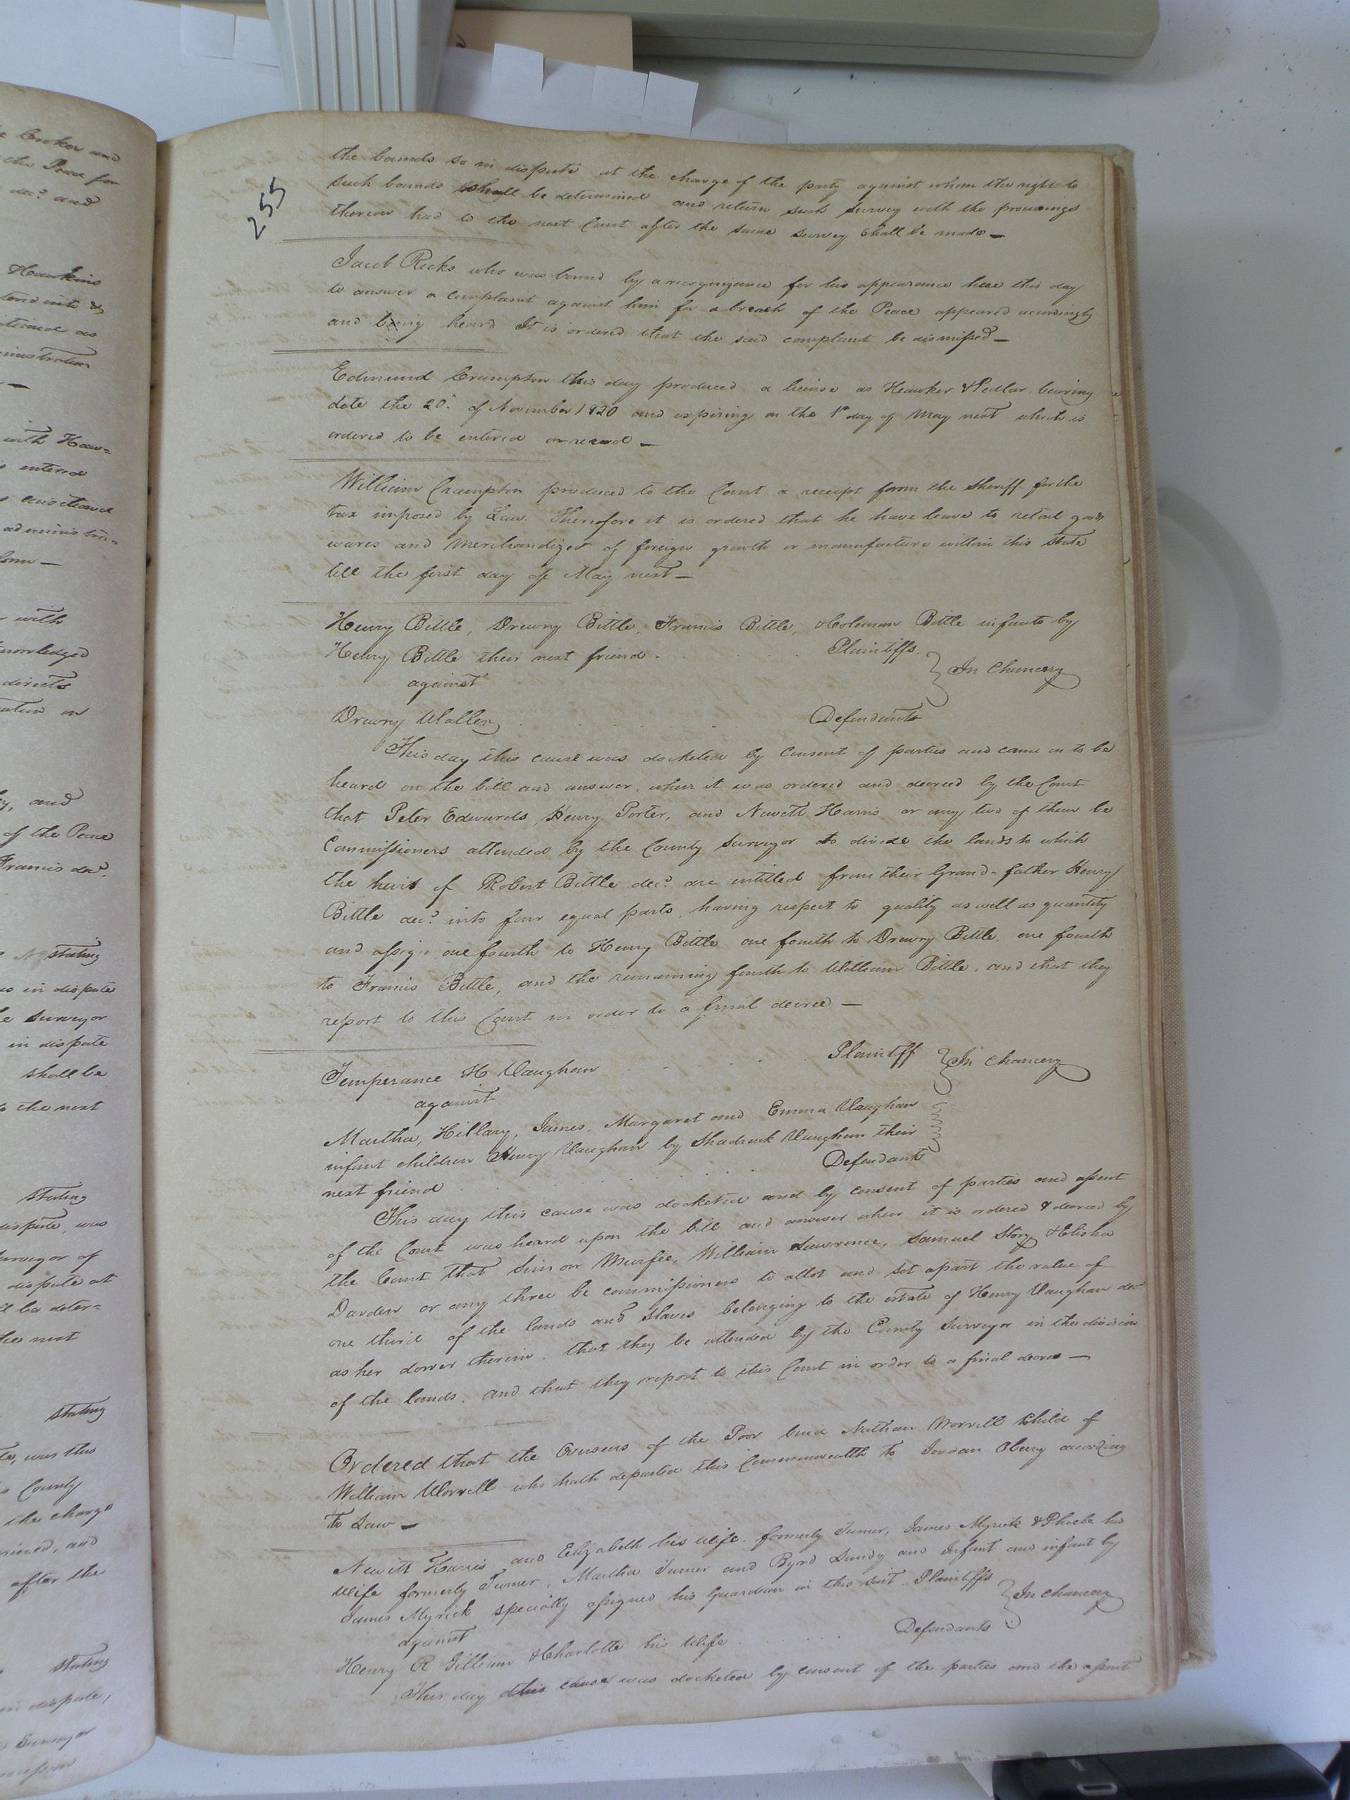 255
the bounds so in dispute at the charge of the party against whom the right to
such bounds shall be determined and return such survey with the proceedings
thereon had to the next Court after the same survey shall be made —
Jacob Ricks who was bound by a recognizance for his appearance here this day
to answer a complaint against him for a breach of the Peace appeared accordingly
and being heard It is ordered that the said complaint be dismissed —
Edmund Crumpton this day produced a license as Hawker & Pedlar bearing
date the 20th of November 1820 and expiring on the 1st day of May next which is
ordered to be entered on record —
William Crumpton produced to the Court a receipt form the Sheriff for the
tax imposed by Law. Therefore it is ordered that he have leave to retail goods
wares and Merchandizes of foreign growth or manufacture within this State
till the first day of May next —
Henry Bittle, Drewry Bittle, Francis Bittle, & Coleman Bittle infants by
Henry Bittle their next friend . Plaintiffs.
against In Chancery
Drewry Waller Defendants
This day this cause was docketed by consent of parties and came on to be
heard on the bill and answer, when it was ordered and decreed by the Court
that Peter Edwards, Henry Porter, and Newitt Harris or any two of them be
Commissioners attended by the County Surveyor to divide the lands to which
the heirs of Robert Bittle decd. are entitled from their Grand-father Henry
Bittle decd. into four equal parts, having respect to quality as well as quantity
and assign one fourth to Henry Bittle one fourth to Drewry Bittle, one fourth
to Francis Bittle, and the remaining fourth to William Bittle, and that they
report to this Court in order to a final decree —
Temperance H Vaughan Plaintiff In Chancery
against
Martha, Hillary, James, Margaret and Emma Vaughan
infant children Henry Vaughan by Shadrack Vaughan their
next friend Defendants
This day this cause was docketed and by consent of parties and assent
of the Court was heard upon the bill and answer when it is ordered & decreed by
the Court that Simon Murfee, William Lawrence, Samuel Story & Elisha
Darden or any three be commissioners to allot and set apart the value of
one third of the lands and slaves belonging to the estate of Henry Vaughan decd
as her dower therein. that they be attended by the County Surveyor in the division
of the lands, and that they report to this Court in order to a final decree —
Ordered that the Overseers of the Poor bind Nathan Worrell child of
William Worrell who hath departed this Commonwealth to Jordan according
to Law —
Newitt Harris and Elizabeth his wife formerly Turner, James Myrick & Phoebe his
wife formerly Turner, Martha Turner and Byrd and Infant and infant by
James Myrick specially assigned his Guardian in this suit Plaintiffs
against In Chancery
Henry R Gilliam & Charlotte his Wife Defendants
This day this cause was docketed by consent of the parties and the assent